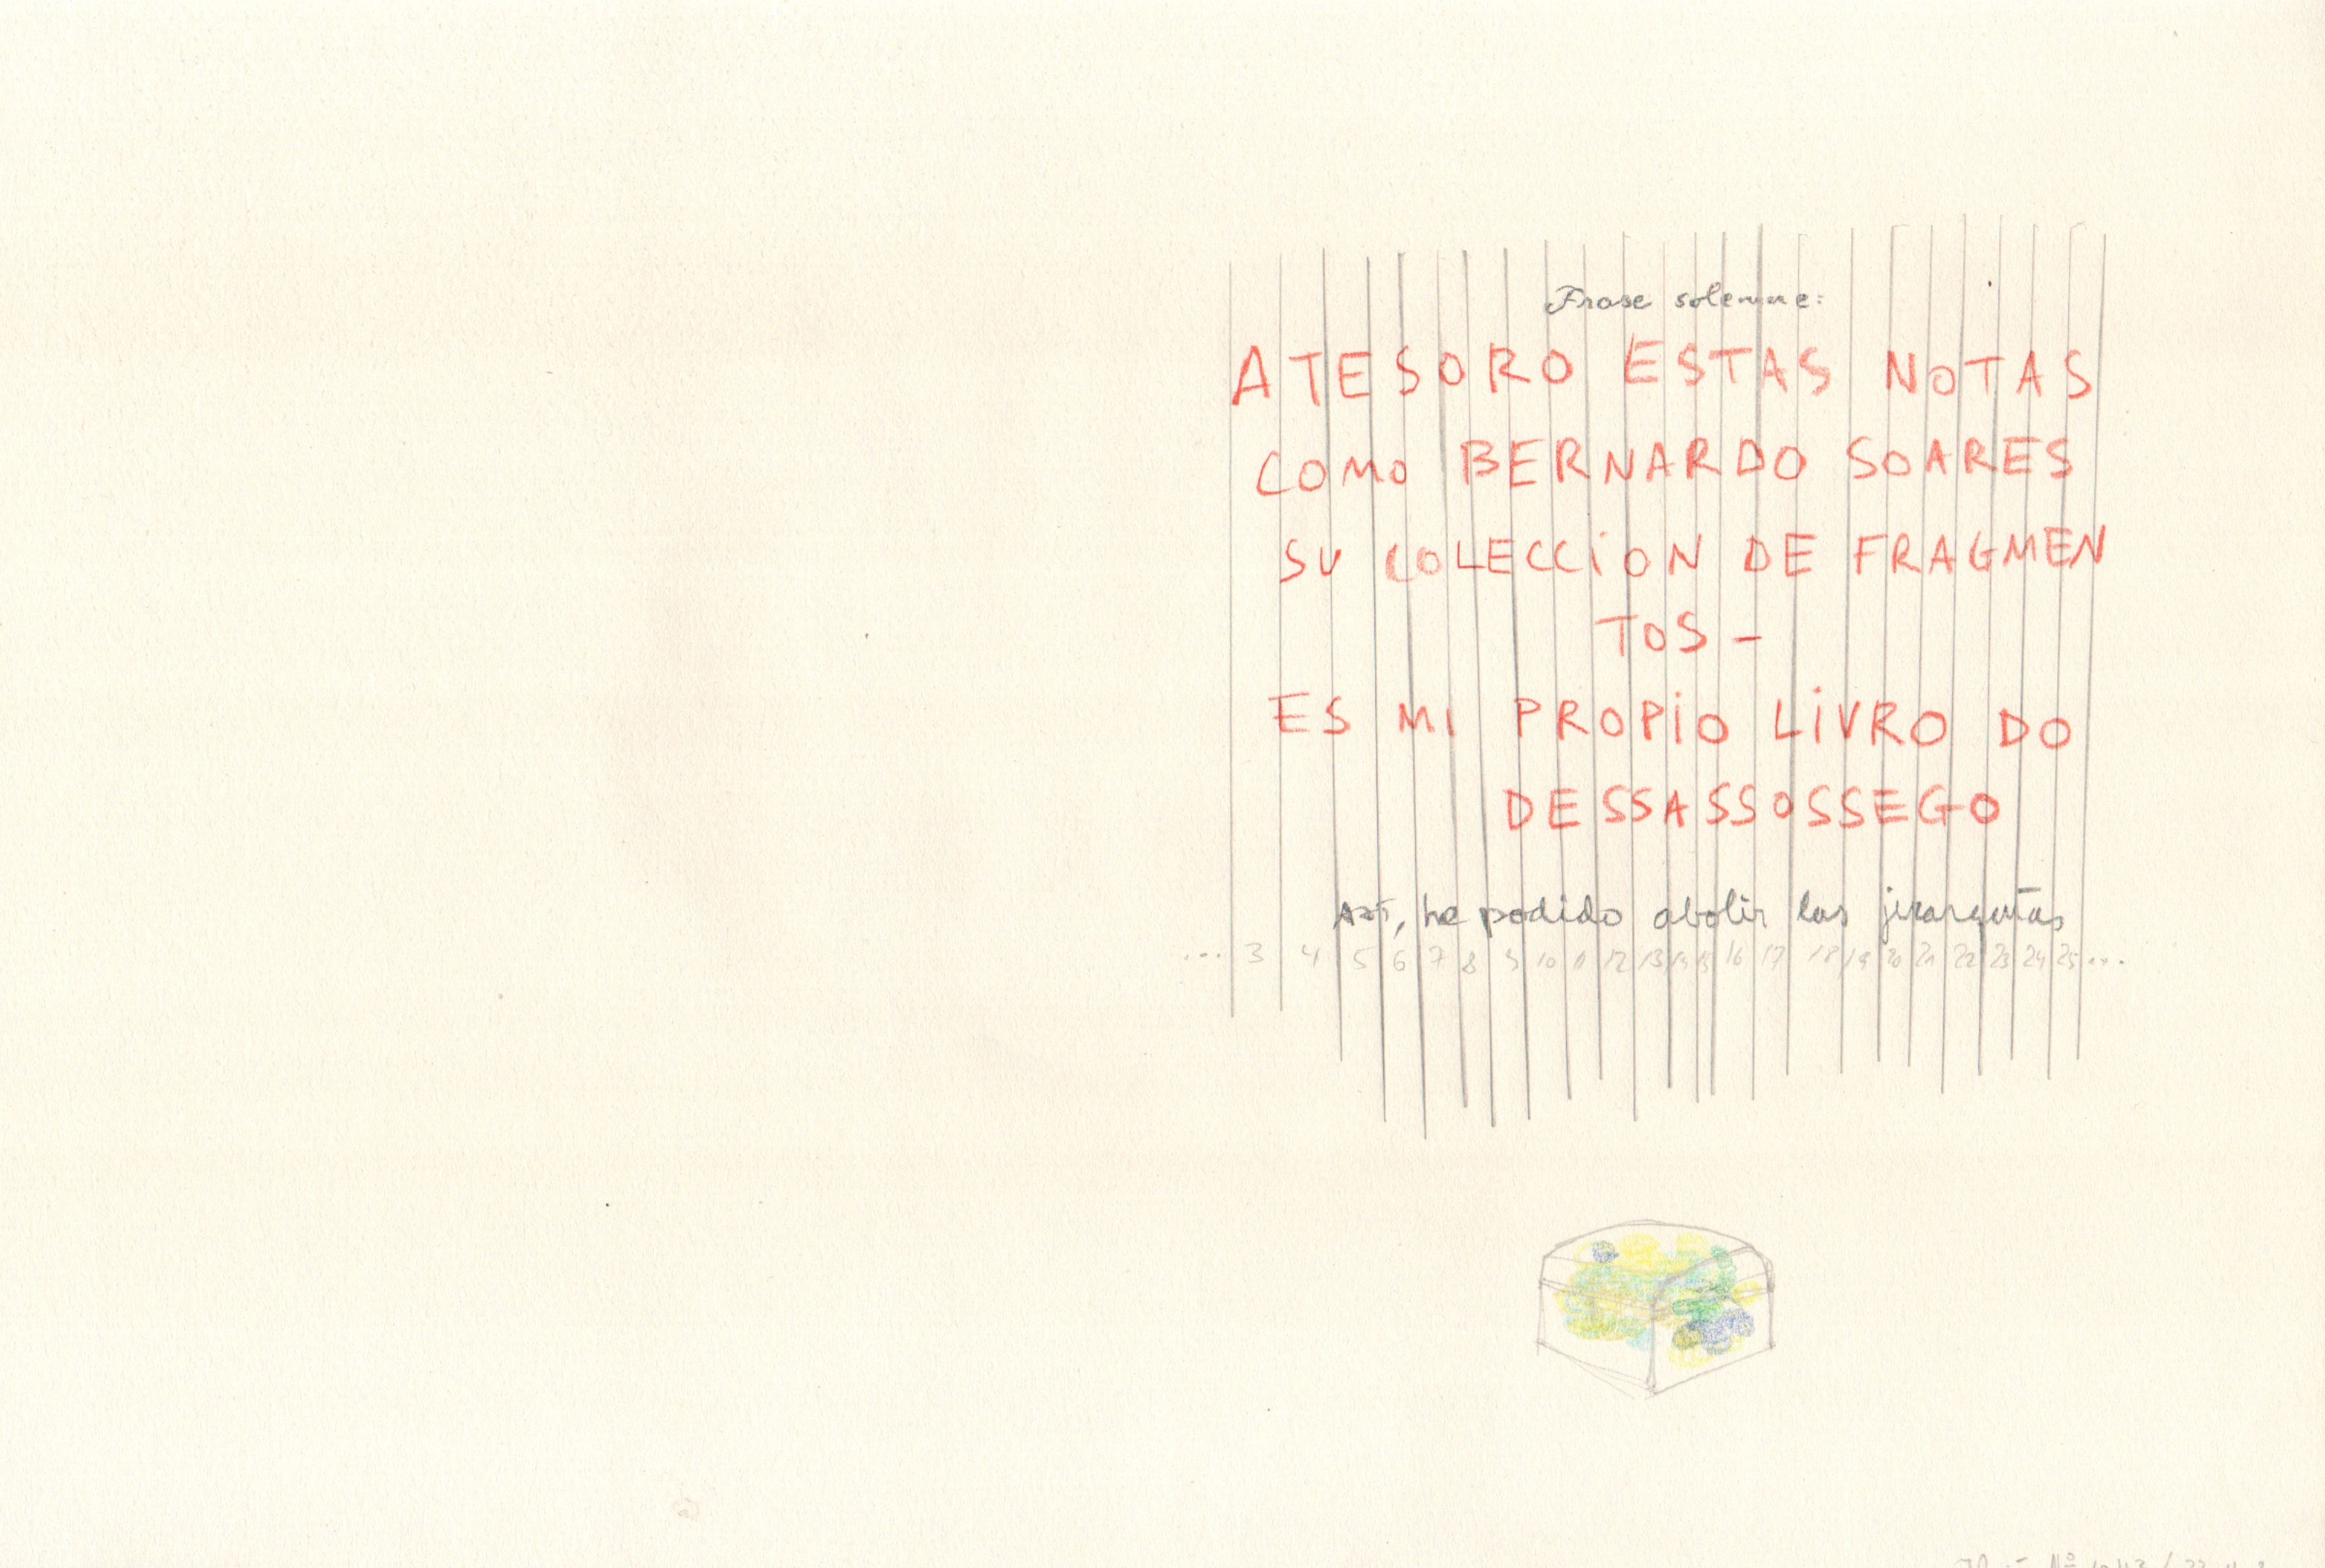 Frase solemne:
ATESORO ESTAS NOTAS
COMO BERNARDO SOARES
SU COLECCION DE FRAGMEN
TOS –
ES MI PROPIO LIVRO DO
DESSASSOSSEGO
Así, he podido abolir las jerarquías
... 3 4 5 6 7 8 9 10 11 12 13 14 15 16 17 18 19 20 21 22 23 24 25 ...